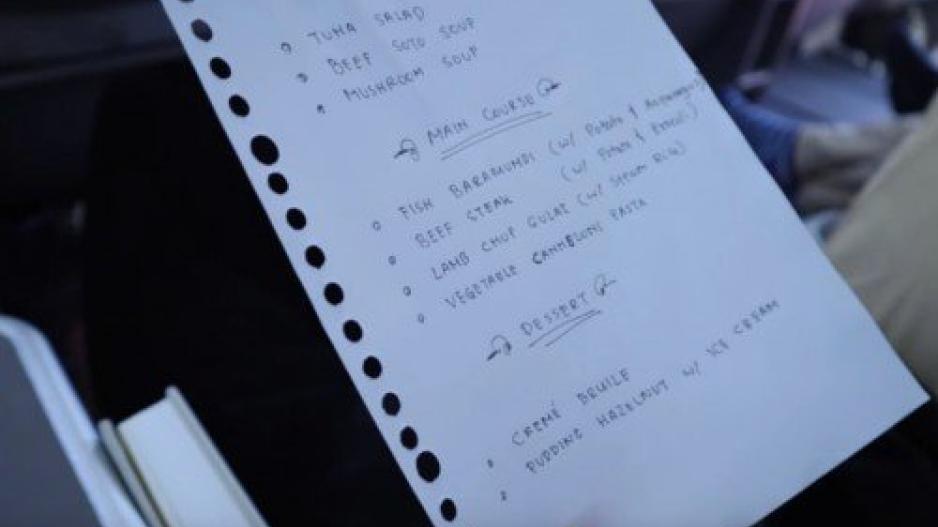 TUNA SALAD
BEEF SOTO SOUP
MUSHROOM SOUP
MAIN COURSE
FISH BARAMUNDI (W/ Potato &
BEEF STEAK (W/ Potato &
LAMB CHOP GULAI (W/ STEAM RICE)
VEGETABLE CANNELONI PASTA
DESSERT
CREMÉ BRUILE
PUDDING HAZELNUT W/ ICE CREAM